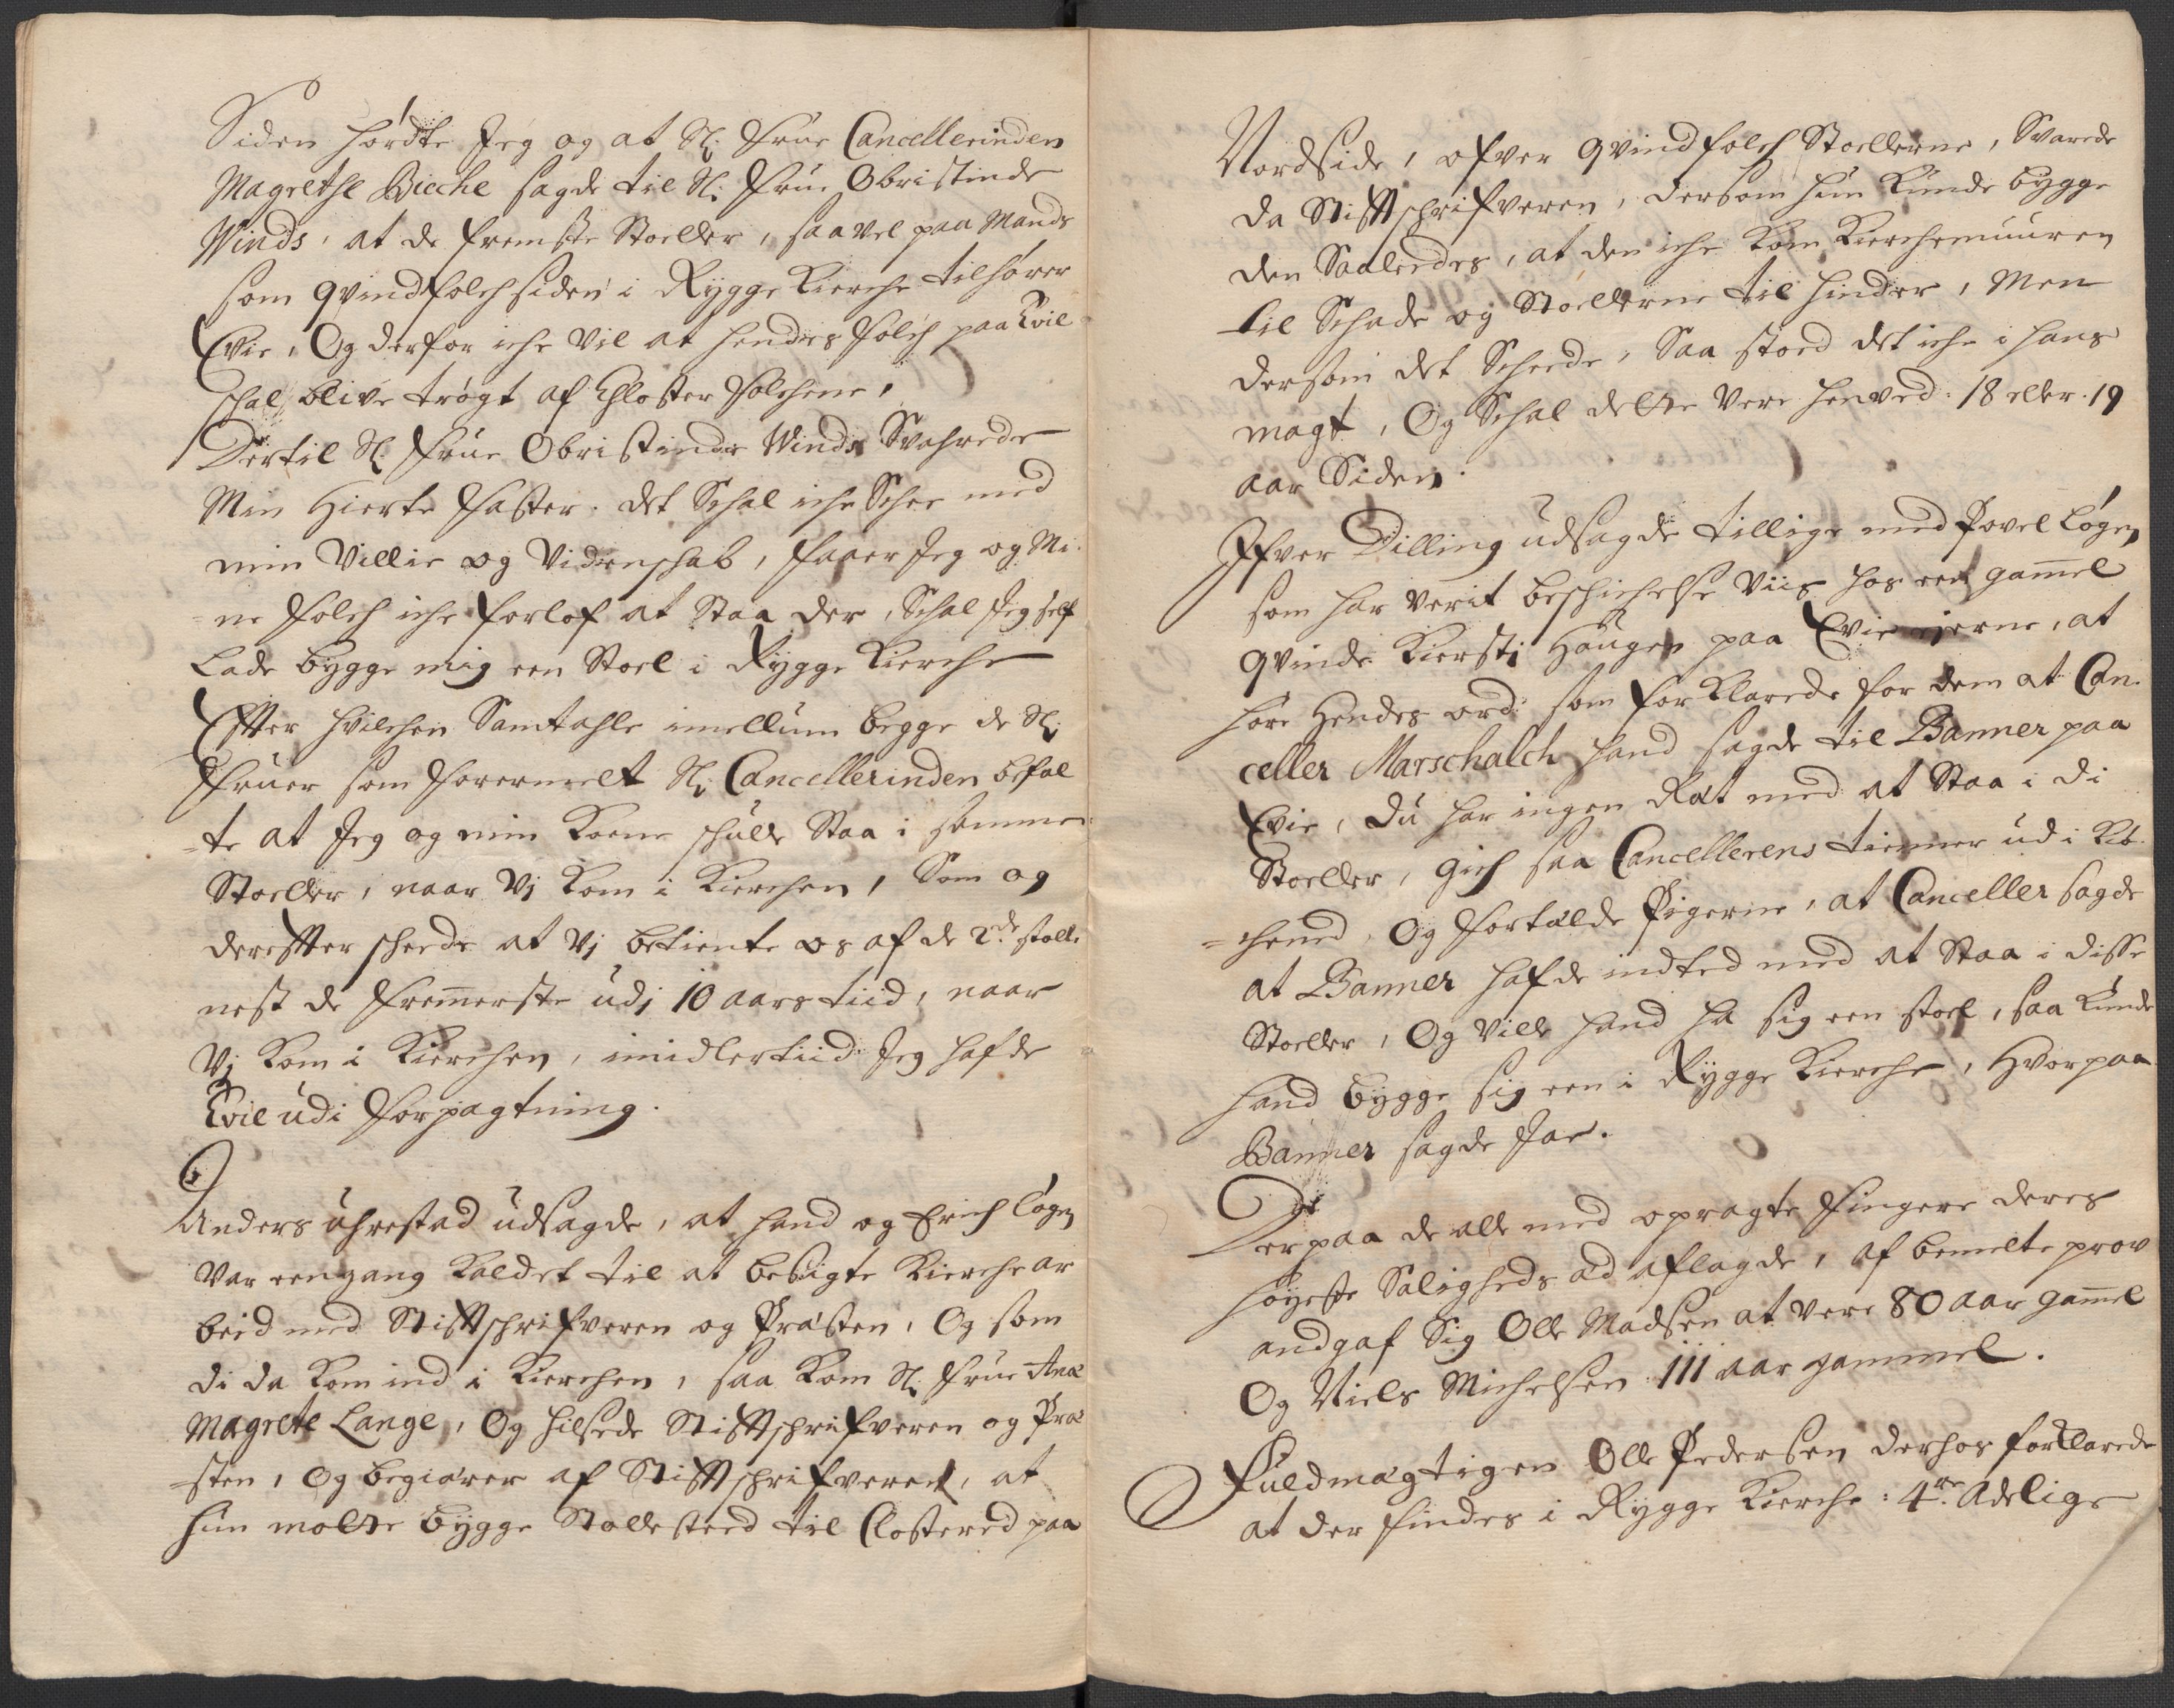 Siden hørdte Jeg og at Sl: Frue Cancellerinden
Magrethe Biecke sagde til Sl: Frue Obristinde
Winds, at de fremste Stoeller, saavel paa Mands
som qvindfolch siden i Rygge Kierche tilhører
Evie, Og derfor iche vil at hendes Folch paa Evie
schal blive trøgt af Closter Folchene,
Dertil Sl: Frue Obristinde Winds Svahrede
Min Hierte Faster. det Schal iche Schee med
min Villie og Videnschab, faaer Jeg og Mi-
ne Folch iche forlof at Staa der, Schal Jeg self
Lade bygge mig een Stoel i Rygge Kierche
Effter hvilchen Samtahle imellum begge de Sl:
Fruer som forermelt Sl: Cancellerinden befal
-te at Jeg og min Koene schulle Staa i samme
Stoeller, naar Vj kom i Kierchen, Som og
dereffter scheede at Vj betiente os af de 2de stolle
nest de Fremmerste udj 10 aars tiid, naar
Vj kom i Kierchen, imidlertiid Jeg hafde
Evie udi Forpagtning.
Anders Uhrestad udsagde, at hand og Erich Løgen
var eengang kaldet til at besigte Kierche ar
beid med Stifftschrifveren og Præsten, Og som
di da kom ind i Kierchen, saa kom Sl: Frue Ane
Magrete Lange, Og hilsede Stifftschrifveren og Præ
-sten, Og begiærer af Stifftschrifveren, at
hun motte bygge Stollested til Closteret paa
Nordside, ofver qvindfolch Stoellerne, Svarede
da Stifftschrifveren, dersom hun kunde bygge
den Saaleedes, at den iche kom Kierchemuuren
til Schade og Stoellerne til hinder, Men
dersom det Scheede, Saa stoed det iche i hans
magt, Og Schal dette vere henved. 18 eller. 19
aar Siden.
Ifver Dilling udsagde tillige med Povel Løgen
som har verit beschichelse viis hos een gammel
qvinde Kiersti Haugen paa Evie eierne, at
høre hendes ord: som forklarede for dem at Can-
celler Marschalch hand sagde til Banner paa
Evie, du har ingen Ræt med at Staa i di
Stoeller, gich saa Cancellerens tienner ud i Kiø-
-chened, Og fortælde Pigerne, at Canceller sagde
at Banner hafde indted med at Staa i disse
Stoeller, Og ville hand ha sig een stoel, saa kunde
hand bygge sig een i Rygge Kierche, Hvorpaa
Banner sagde Jae.
Derpaa de alle med opragte Fingere deres
høyeste Saligheds æd aflagde, af bemelte prov
andgaf Sig Olle Madsen at vere 80 aar gammel
Og Niels Michelsen 111 aar gammel.
Fuldmægtigen Olle Pedersen derhos forklarede
at der findes i Rygge Kierche: 4re Adelige